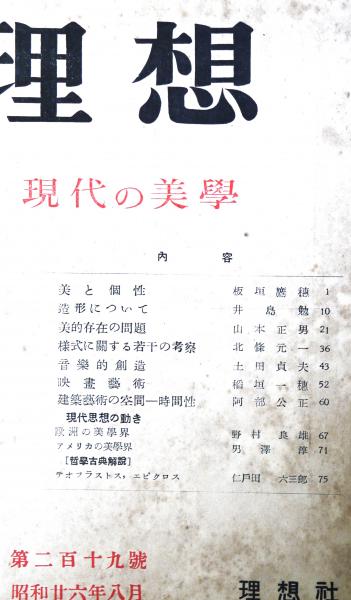 理想
現代の美學
內容
美と個性 板垣鷹穗 1
造形について 井島勉 10
美的存在の問題 山本正男 21
樣式に關する若干の考察 北條元一 36
音樂的創造 土田貞夫 43
映畫藝術 稻垣一穗 52
建築藝術の空間—時間性 阿部公正 60
現代思想の動き
歐洲の美學界 野村良雄 67
アメリカの美學界 男澤淳 71
[哲學古典解說]
テオフラストス,エピクロス 仁戸田六三郎 75
第二百十九號
昭和廿六年八月 理想社